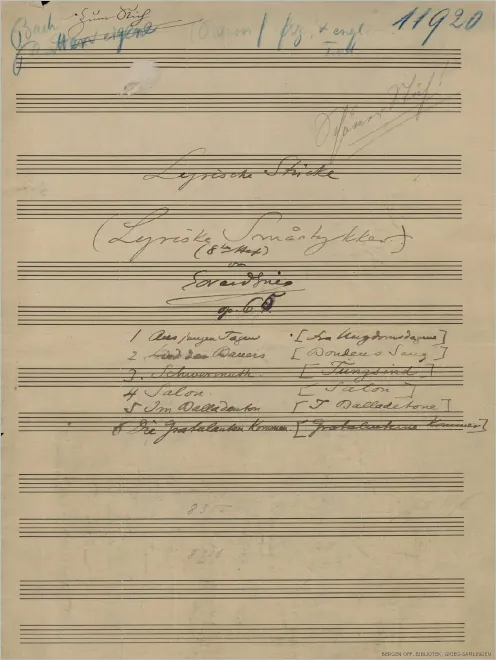 Zum Stich
Bach
11920
Lyrische Stücke
(Lyriske Småstykker)
(8tes Heft)
von
Edvard Grieg
op. 65.
1 Aus jungen Tagen [Fra Ungdomsdagene]
2 Lied des Bauers [Bondens Sang]
3. Schwermuth. [Tungsind]
4 Salon. [Salon]
5 Im Balladenton [I Balladetone]
6 Die Gratulanten kommen [Gratulanterne kommer]
BERGEN OFF. BIBLIOTEK, GRIEG-SAMLINGEN